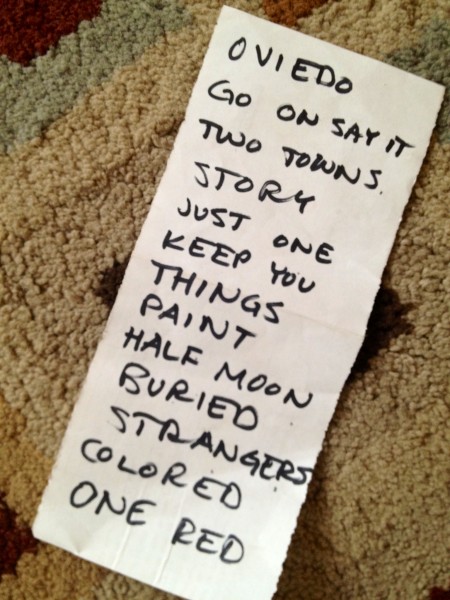 OVIEDO
GO ON SAY IT
TWO TOWNS.
STORY
JUST ONE
KEEP YOU
THINGS
PAINT
HALF MOON
BURIED
STRANGERS
COLORED
ONE RED